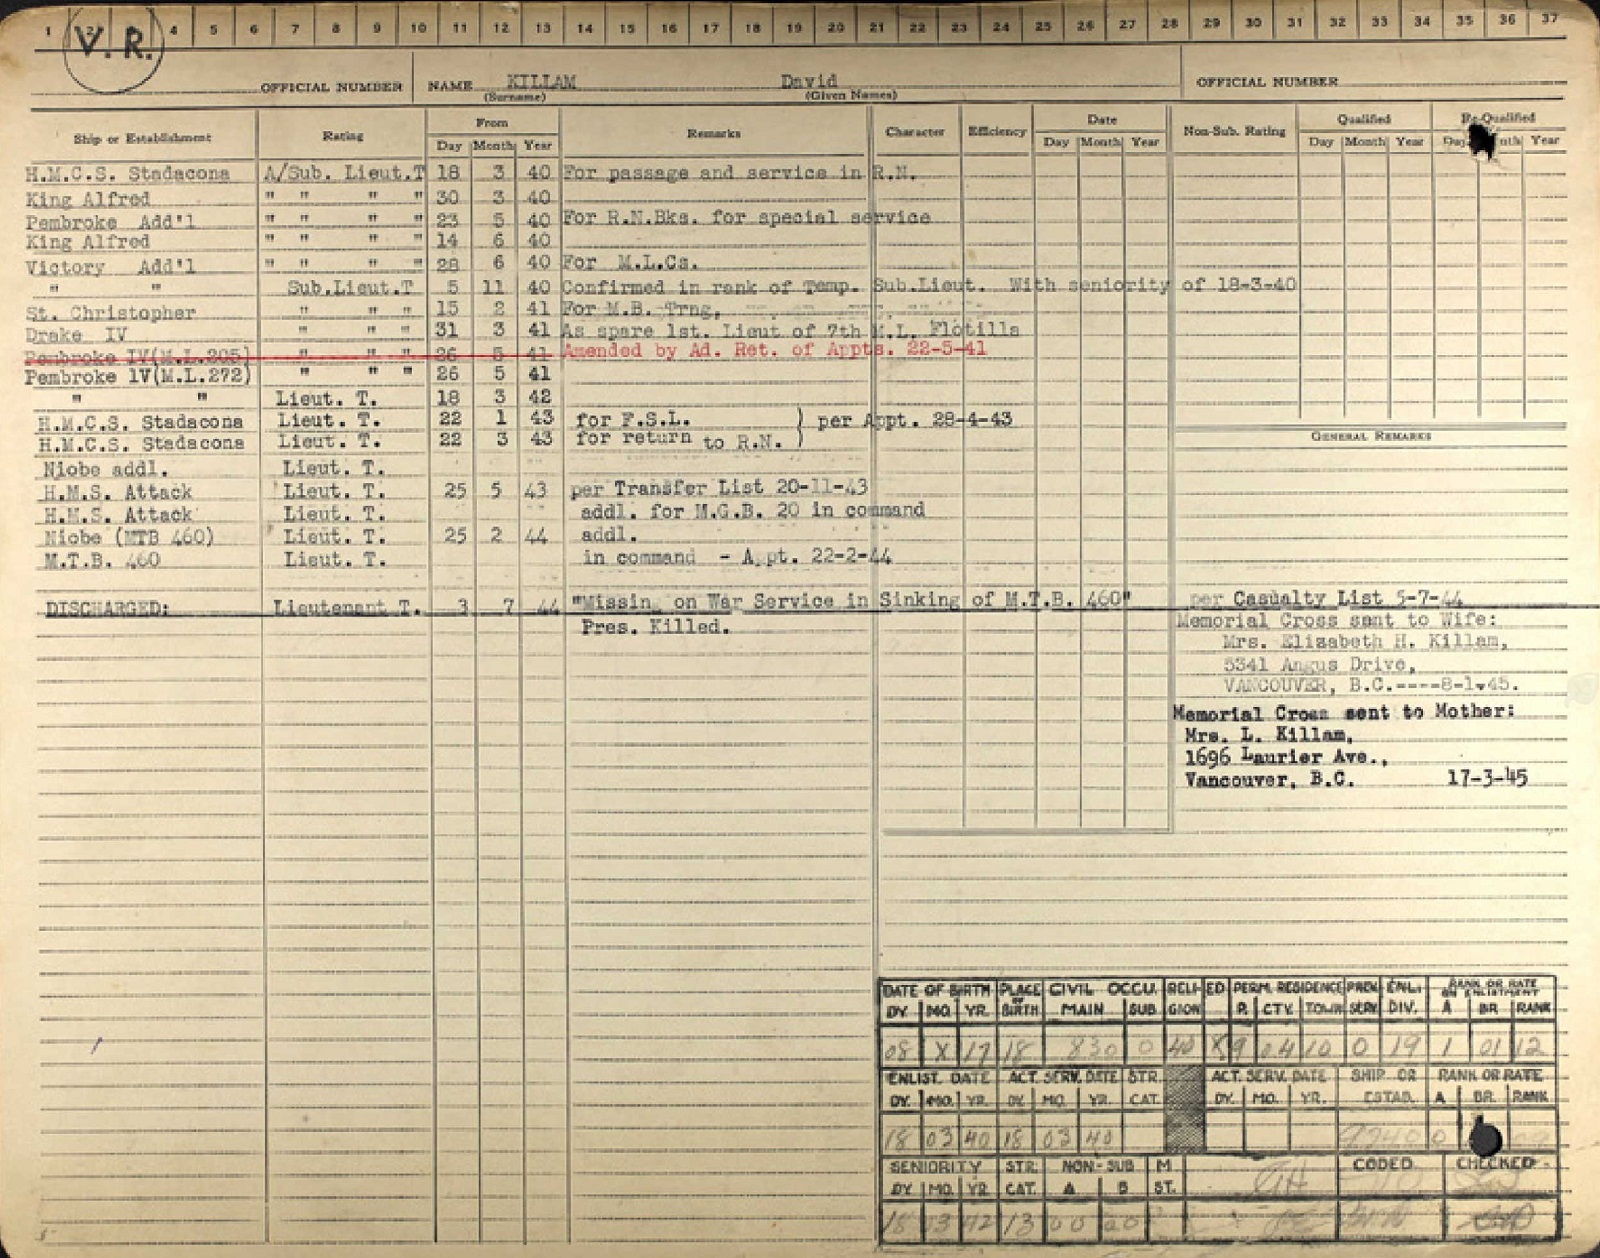 1 2 3 4 5 6 7 8 9 10 11 12 13 14 15 16 17 18 19 20 21 22 23 24 25 26 27 28 29 30 31 32 33 34 35 36 37
V. R.
OFFICIAL NUMBER NAME KILLAM David OFFICIAL NUMBER
(Surname) (Given Names)
Ship or Establishment Rating From Remarks Character Efficiency Date Non-Sub. Rating Qualified Re-Qualified
Day Month Year Day Month Year Day Month Year Day Month Year
H.M.C.S. Stadacona A/Sub. Lieut.T 18 3 40 For passage and service in R.N.
King Alfred " " " " 30 3 40
Pembroke Add'l " " " " 23 5 40 For R.N.Bks. for special service
King Alfred " " " " 14 6 40
Victory Add'l " " " " 28 6 40 For M.L.Cs.
" " Sub.Lieut.T 5 11 40 Confirmed in rank of Temp. Sub.Lieut. With seniority of 18-3-40
St. Christopher " " " 15 2 41 For M.B. Trng.
Drake IV " " " 31 3 41 As spare 1st. Lieut of 7th M.L. Flotilla
Pembroke IV(M.L.205) " " " 26 5 41 Amended by Ad. Ret. of Appts. 22-5-41
Pembroke 1V(M.L.272) " " " 26 5 41
" " Lieut. T. 18 3 42
H.M.C.S. Stadacona Lieut. T. 22 1 43 for F.S.L. ) per Appt. 28-4-43
H.M.C.S. Stadacona Lieut. T. 22 3 43 for return to R.N. )
Niobe addl. Lieut. T.
H.M.S. Attack Lieut. T. 25 5 43 per Transfer List 20-11-43
H.M.S. Attack Lieut. T. addl. for M.G.B. 20 in command
Niobe (MTB 460) Lieut. T. 25 2 44 addl.
M.T.B. 460 Lieut. T. in command - Appt. 22-2-44
DISCHARGED: Lieutenant T. 3 7 44 "Missing on War Service in Sinking of M.T.B. 460" per Casualty List 5-7-44
Pres. Killed.
GENERAL REMARKS
Memorial Cross sent to Wife:
Mrs. Elizabeth H. Killam,
5341 Angus Drive,
VANCOUVER, B.C.----8-1-45.
Memorial Cross sent to Mother:
Mrs. L. Killam,
1696 Laurier Ave.,
Vancouver, B.C. 17-3-45
DATE OF BIRTH PLACE OF BIRTH CIVIL OCCU. RELIGION ED PERM. RESIDENCE PREV. SERV. ENL. DIV. RANK OR RATE ON ENLISTMENT
DY. MO. YR. MAIN SUB. P. CTY. TOWN A BR RANK
08 X 17 18 830 0 40 X 9 04 10 0 19 1 01 12
ENLIST. DATE ACT. SERV. DATE STR. ACT. SERV. DATE SHIP OR RANK OR RATE
DY. MO. YR. DY. MO. YR. CAT. DY. MO. YR. ESTAB. A BR. RANK
18 03 40 18 03 40
SENIORITY STR. NON-SUB M CODED CHECKED
DY. MO. YR. CAT. A B ST.
18 03 42 13 00 00